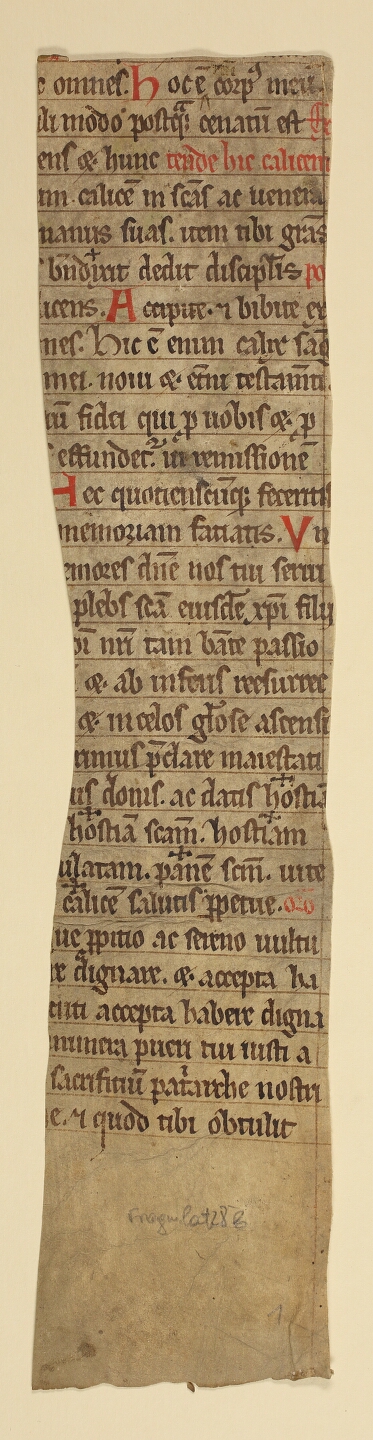 e omnes. Hoc ē corpꝰ meū.
ili modo postqͣ cenatū est
ens ⁊ hunc tende hic calicem
um. calicē in scās ac uenera
manus suas. item tibi grās
bn̄dixit dedit discipl̄is po
icens. Accipite. ⁊ bibite ex
nes. Hic ē enim calix sāg
mei. noui ⁊ et̄ni testam̄ti.
iū fidei qui ꝓ uobis ⁊ ꝓ
effundet᷑. in remissionē
Hec quotienscūqꝫ feceritis
memoriam faciatis. Vn
emores dn̄e nos tui serui
plebs scā eiusdē xp̄i filii
n̄i nr̄i tam bāte passio
⁊ ab inferis resurrec
⁊ in celos gl̄ose ascensi
rimus p̄clare maiestati
uis donis. ac datis hostiā
hostiā scām. hostiam
ulatam. panē scm̄. uite
calicē salutis ꝑpetue.
que ꝓpitio ac sereno uultu
re dignare. ⁊ accepta ha
cuti accepta habere digna
munera pueri tui iusti a
sacrificiū pat̾arche nostri
e. ⁊ quod tibi obtulit
Fragm. lat 28 b
1